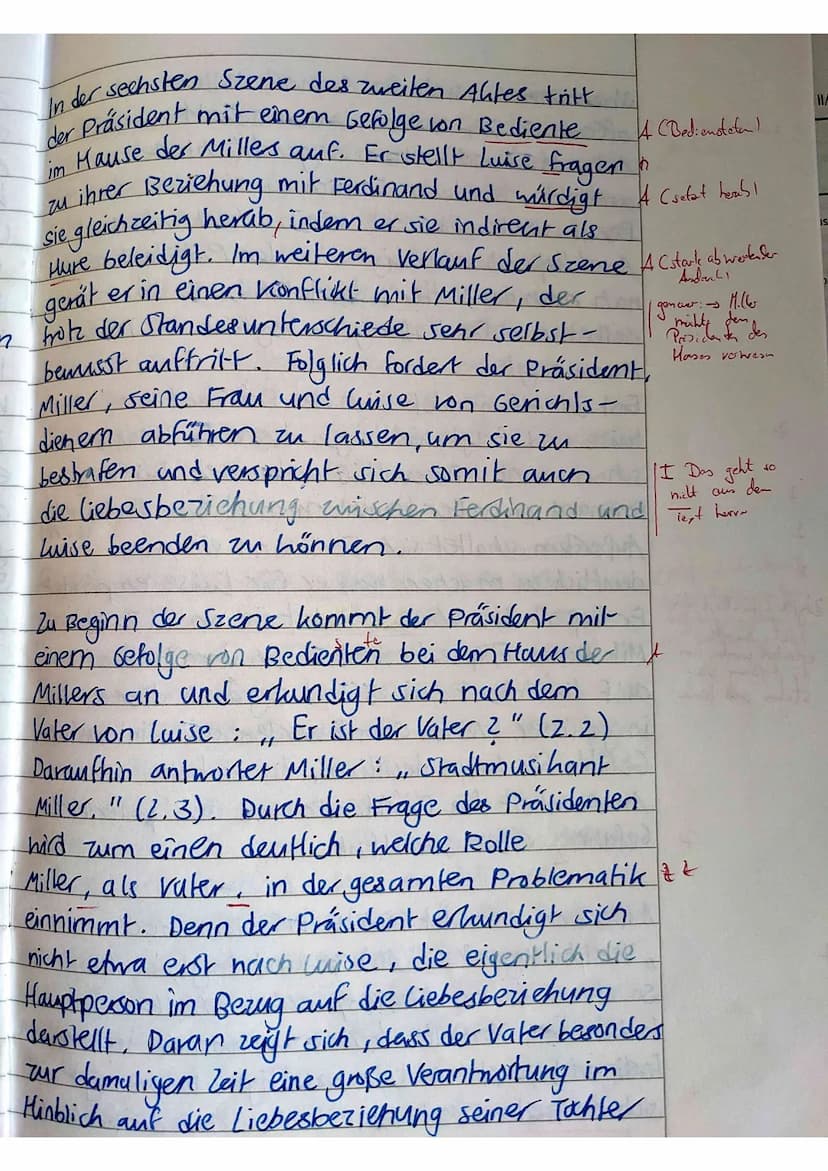 In der sechsten Szene des zweiten Aktes tritt
der Präsident mit einem Gefolge von Bediente
A (Bediensteten)
im Hause der Milles auf. Er stellt Luise Fragen
n
zu ihrer Beziehung mit Ferdinand und würdigt
A (setzt herab)
sie gleichzeitig herab, indem er sie indirekt als
Hure beleidigt. Im weiteren Verlauf der Szene
A (stark abwertender
Ausdruck)
gerät er in einen Konflikt mit Miller, der
genauer: → Miller
möchte den
trotz der Standesunterschiede sehr selbst-
Präsidenten des
n
bewusst auftritt. Folglich fordert der Präsident,
Hauses verweisen
Miller, seine Frau und Luise von Gerichts-
dienern abführen zu lassen, um sie zu
bestrafen und verspricht sich somit auch
I Das geht so
nicht aus dem
die Liebesbeziehung zwischen Ferdinand und
Text hervor
Luise beenden zu können.
Zu Beginn der Szene kommt der Präsident mit
s te
einem Gefolge von Bedienten bei dem Haus der
A
Millers an und erkundigt sich nach dem
Vater von Luise: „Er ist der Vater?" (Z.2)
Daraufhin antwortet Miller: „Stadtmusikant
Miller." (Z.3). Durch die Frage des Präsidenten
wird zum einen deutlich, welche Rolle
Miller, als Vater, in der gesamten Problematik
Z Z
einnimmt. Denn der Präsident erkundigt sich
nicht etwa erst nach Luise, die eigentlich die
Hauptperson im Bezug auf die Liebesbeziehung
darstellt. Daran zeigt sich, dass der Vater besonders
zur damaligen Zeit eine große Verantwortung im
Hinblick auf die Liebesbeziehung seiner Tochter